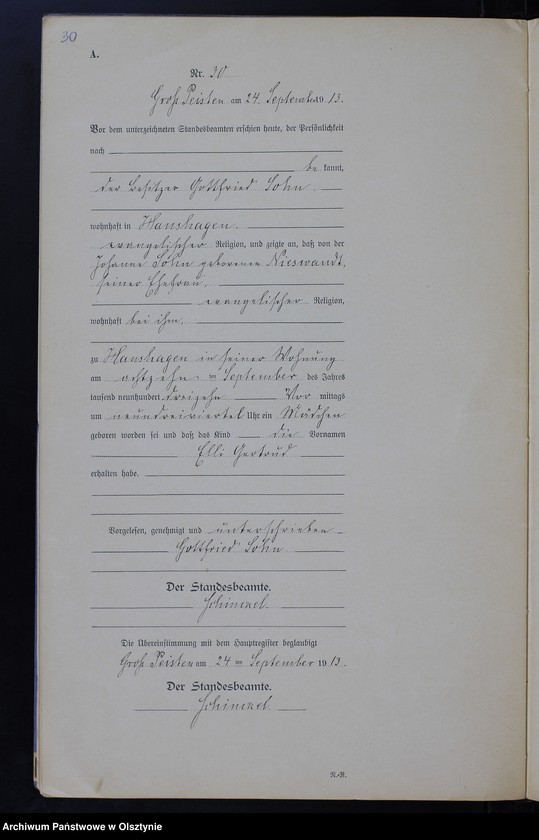 30
A.
Nr. 30
Groß Peisten am 24. September 1913.
Vor dem unterzeichneten Standesbeamten erschien heute, der Persönlichkeit
nach
be kannt,
der Besitzer Gottfried Sohn.
wohnhaft in Hanshagen.
evangelischer Religion, und zeigte an, daß von der
Johanne Sohn geborenen Nieswandt,
seiner Ehefrau,
evangelischer Religion,
wohnhaft bei ihm.
zu Hanshagen in seiner Wohnung
am achtzehn ten September des Jahres
tausend neunhundert dreizehn Vor mittags
um neundreiviertel Uhr ein Mädchen
geboren worden sei und daß das Kind die Vornamen
Elli Gertrud
erhalten habe.
Vorgelesen, genehmigt und unterschrieben
Gottfried Sohn
Der Standesbeamte.
Schinkel.
Die Übereinstimmung mit dem Hauptregister beglaubigt
Groß Peisten am 24 ten September 1913.
Der Standesbeamte.
Schinkel.
N.-R.
Archiwum Państwowe w Olsztynie